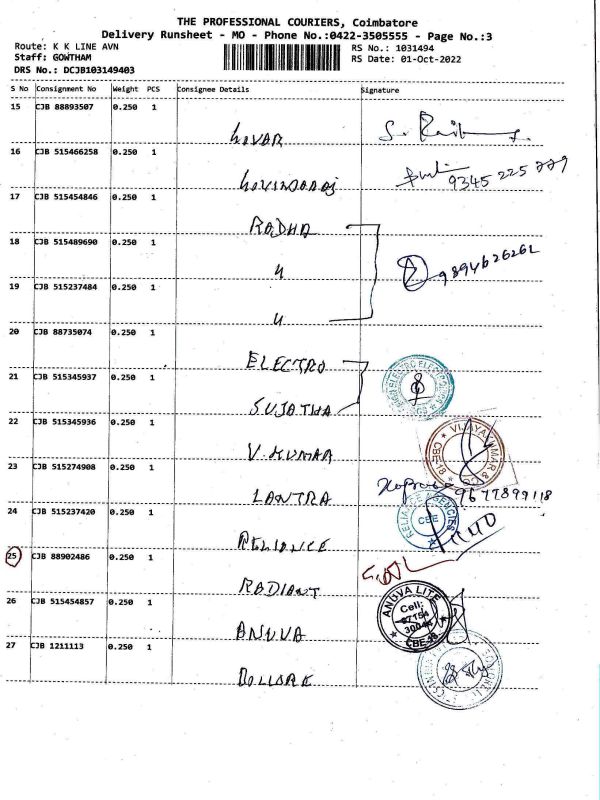 THE PROFESSIONAL COURIERS, Coimbatore
Delivery Runsheet - MO - Phone No.:0422-3505555 - Page No.:3
Route: K K LINE AVN
RS No.: 1031494
Staff: GOWTHAM
RS Date: 01-Oct-2022
DRS No.: DCJB103149403
S No Consignment No Weight PCS Consignee Details Signature
15 CJB 88893507 0.250 1
16 CJB 515466258 0.250 1
9345 225 779
17 CJB 515454846 0.250 1
RADHA
18 CJB 515489690 0.250 1
〃
9894626262
19 CJB 515237484 0.250 1
〃
20 CJB 88735074 0.250 1
ELECTRO
21 CJB 515345937 0.250 1
SUJATHA
22 CJB 515345936 0.250 1
V.KUMAR
CBE-18
23 CJB 515274908 0.250 1
LANTRA
9677899118
24 CJB 515237420 0.250 1
RELIANCE
RELIANCE AGENCIES
CBE
25 CJB 88902486 0.250 1
RADIANT
26 CJB 515454857 0.250 1
ANUVA
ANUVA LITE
Cell:
CBE-18
27 CJB 1211113 0.250 1